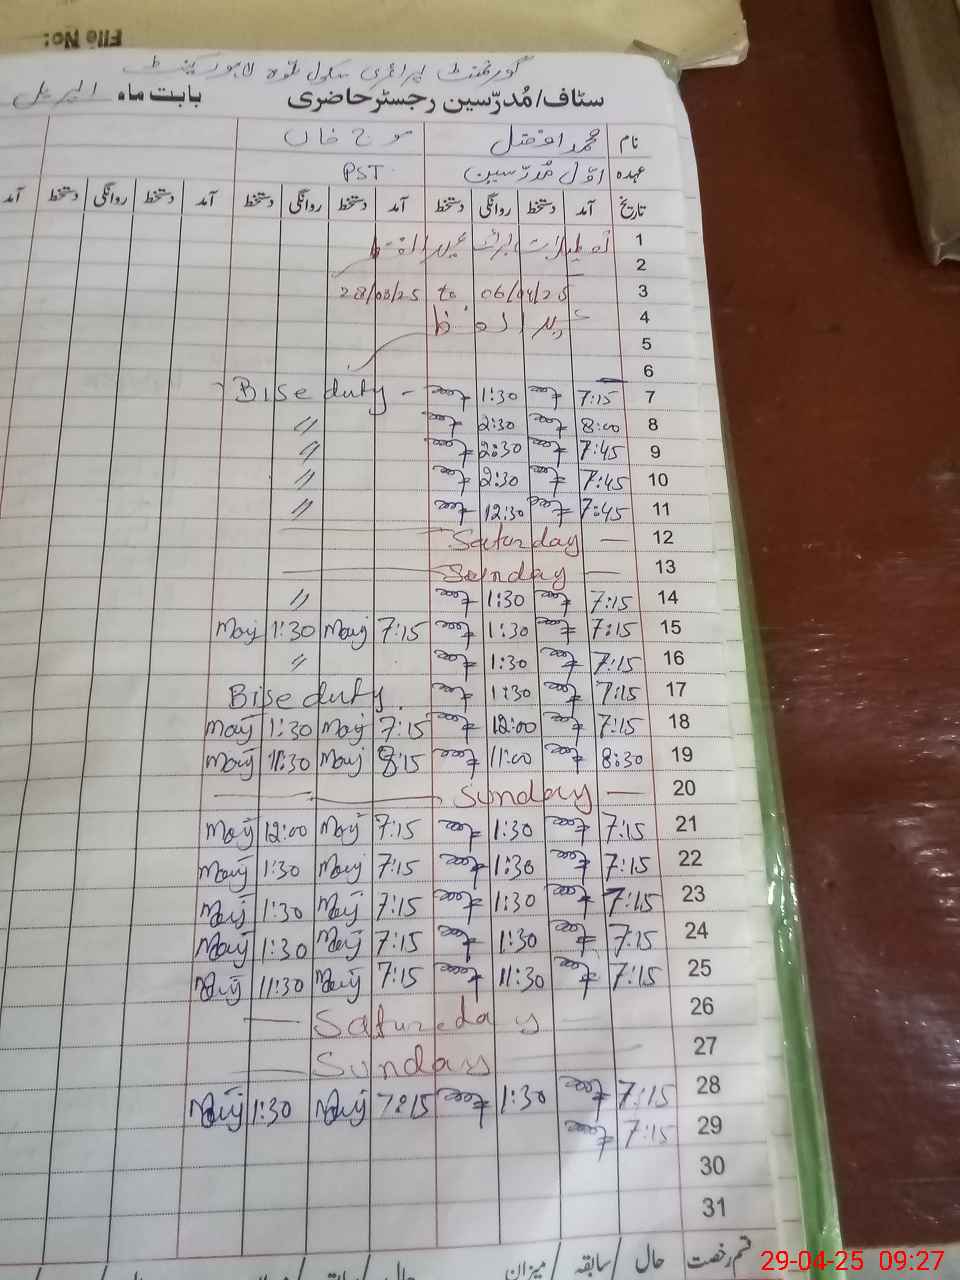 File No:
گورنمنٹ پرائمری سکول لاہور کینٹ
سٹاف/مُدرّسین رجسٹر حاضری بابت ماہ اپریل
نام محمد افضل موج خاں
عہدہ اوّل مُدرّسین PST
تاریخ آمد دستخط روانگی دستخط آمد دستخط روانگی دستخط آمد دستخط روانگی دستخط آمد
1 تعطیلات برائے عید الفطر
2
3 28/03/25 to 06/04/25
4 عید الفطر
5
6
7 7:15 1:30 Bise duty -
8 8:00 2:30 〃
9 7:45 2:30 〃
10 7:45 2:30 〃
11 7:45 12:30 〃
12 — Saturday —
13 — Sunday —
14 7:15 1:30 〃
15 7:15 1:30 7:15 Mouj 1:30 Mouj
16 7:15 1:30 〃
17 7:15 1:30 Bise duty.
18 7:15 12:00 7:15 Mouj 1:30 Mouj
19 8:30 11:00 8:15 Mouj 11:30 Mouj
20 — Sunday —
21 7:15 1:30 7:15 Mouj 12:00 Mouj
22 7:15 1:30 7:15 Mouj 1:30 Mouj
23 7:15 1:30 7:15 Mouj 1:30 Mouj
24 7:15 1:30 7:15 Mouj 1:30 Mouj
25 7:15 11:30 7:15 Mouj 11:30 Mouj
26 — Satureday —
27 Sunday
28 7:15 1:30 7:15 Mouj 1:30 Mouj
29 7:15
30
31
قسم رخصت حال / سابقہ / میزان حال
29-04-25 09:27